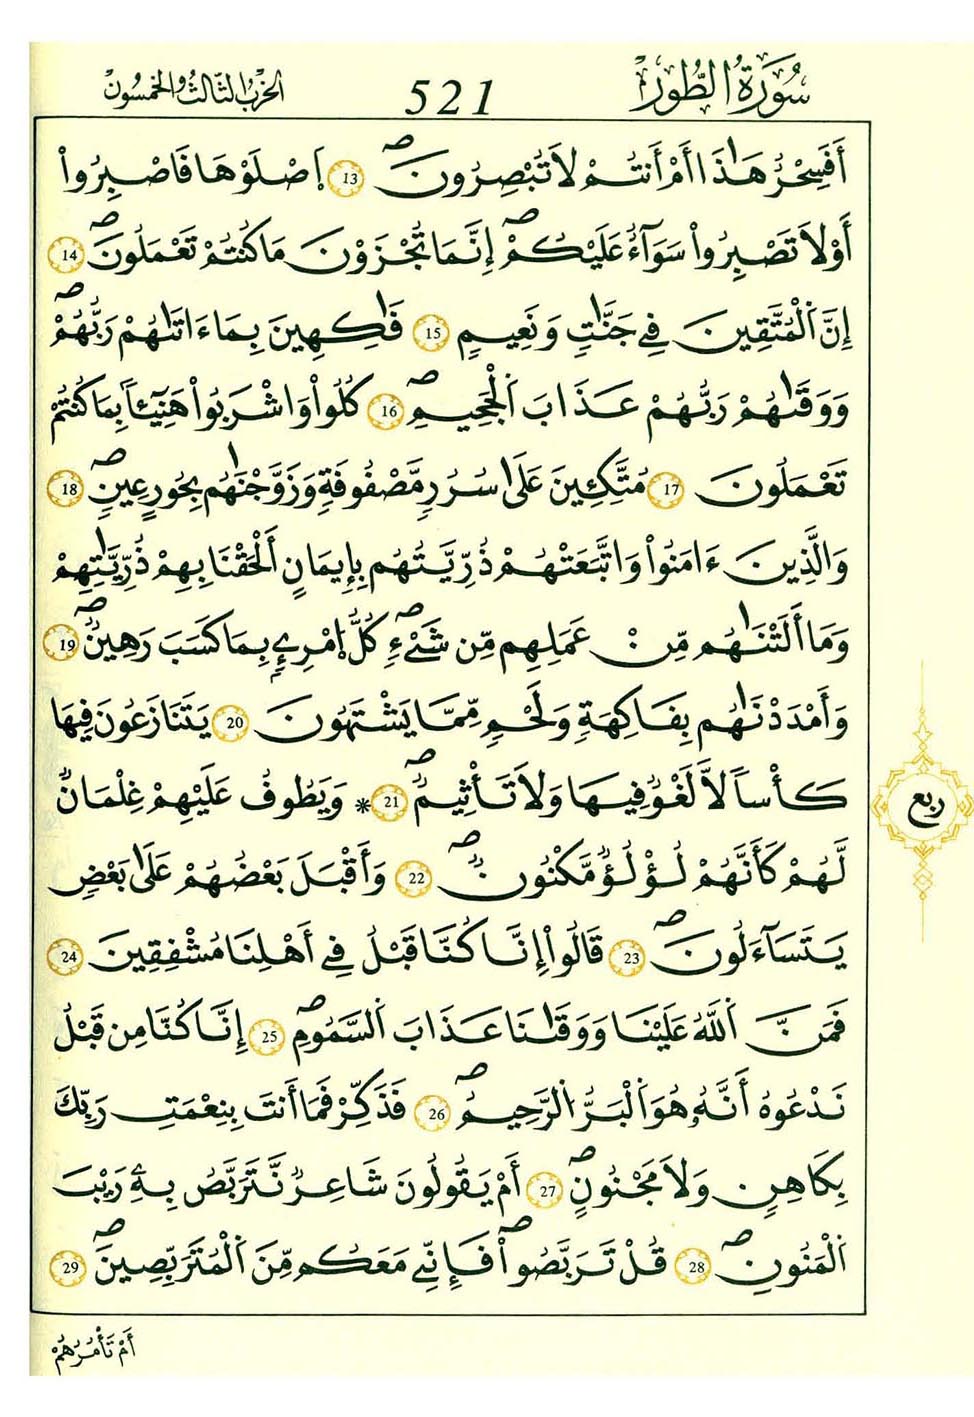 سُورَةُ الطُّورِ
521
الحِزْبُ الثَّالِثُ وَالْخَمْسُونَ
أَفَسِحْرٌ هَٰذَا أَمْ أَنتُمْ لَا تُبْصِرُونَۖ 13 اَ۪صْلَوْهَا فَاصْبِرُوٓاْ
أَوْ لَا تَصْبِرُواْ سَوَآءٌ عَلَيْكُمْۖ إِنَّمَا تُجْزَوْنَ مَا كُنتُمْ تَعْمَلُونَۖ 14
إِنَّ اَ۬لْمُتَّقِينَ فِے جَنَّٰتٍ وَنَعِيمٍ 15 فَٰكِهِينَ بِمَا ءَاتَىٰهُمْ رَبُّهُمْۖ
وَوَقَىٰهُمْ رَبُّهُمْ عَذَابَ اَ۬لْجَحِيمِۖ 16 كُلُواْ وَاشْرَبُواْ هَنِيٓـٔاَۢ بِمَا كُنتُمْ
تَعْمَلُونَ 17 مُتَّكِـِٔينَ عَلَىٰ سُرُرٍ مَّصْفُوفَةٍ وَزَوَّجْنَٰهُم بِحُورٍ عِينٍۖ 18
وَالَّذِينَ ءَامَنُواْ وَاتَّبَعَتْهُمْ ذُرِّيَّتُهُم بِإِيمَانٍ أَلْحَقْنَا بِهِمْ ذُرِّيَّٰتِهِمْ
وَمَا أَلَتْنَٰهُم مِّنْ عَمَلِهِم مِّن شَےْءٍۖ كُلُّ اُ۪مْرِےِٕۢ بِمَا كَسَبَ رَهِينٌۖ 19
وَأَمْدَدْنَٰهُم بِفَٰكِهَةٍ وَلَحْمٍ مِّمَّا يَشْتَهُونَ 20 يَتَنَٰزَعُونَ فِيهَا
كَأْساً لَّا لَغْوٌ فِيهَا وَلَا تَأْثِيمٌۖ 21 * وَيَطُوفُ عَلَيْهِمْ غِلْمَانٌ
لَّهُمْ كَأَنَّهُمْ لُؤْلُؤٌ مَّكْنُونٌۖ 22 وَأَقْبَلَ بَعْضُهُمْ عَلَىٰ بَعْضٍ
يَتَسَآءَلُونَۖ 23 قَالُواْ إِنَّا كُنَّا قَبْلُ فِے أَهْلِنَا مُشْفِقِينَ 24
فَمَنَّ اَ۬للَّهُ عَلَيْنَا وَوَقَىٰنَا عَذَابَ اَ۬لسَّمُومِۖ 25 إِنَّا كُنَّا مِن قَبْلُ
نَدْعُوهُ أَنَّهُۥ هُوَ اَ۬لْبَرُّ اُ۬لرَّحِيمُۖ 26 فَذَكِّرْ فَمَا أَنتَ بِنِعْمَتِ رَبِّكَ
بِكَاهِنٍ وَلَا مَجْنُونٍۖ 27 أَمْ يَقُولُونَ شَاعِرٌ نَّتَرَبَّصُ بِهِۦ رَيْبَ
اَ۬لْمَنُونِۖ 28 قُلْ تَرَبَّصُواْۖ فَإِنِّے مَعَكُم مِّنَ اَ۬لْمُتَرَبِّصِينَۖ 29
ربع
أَمْ تَأْمُرُهُمْ